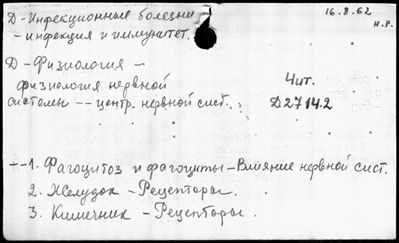 Д - Инфекционные болезни
16.8.62
- инфекция и иммунитет.
Н.Р.
Д - Физиология -
физиология нервной
Чит.
системы -- центр. нервной сист.
Д2714.2
+-1. Фагоцитоз и фагоциты - Влияние нервной сист.
2. Желудок - Рецепторы.
3. Кишечник - Рецепторы.